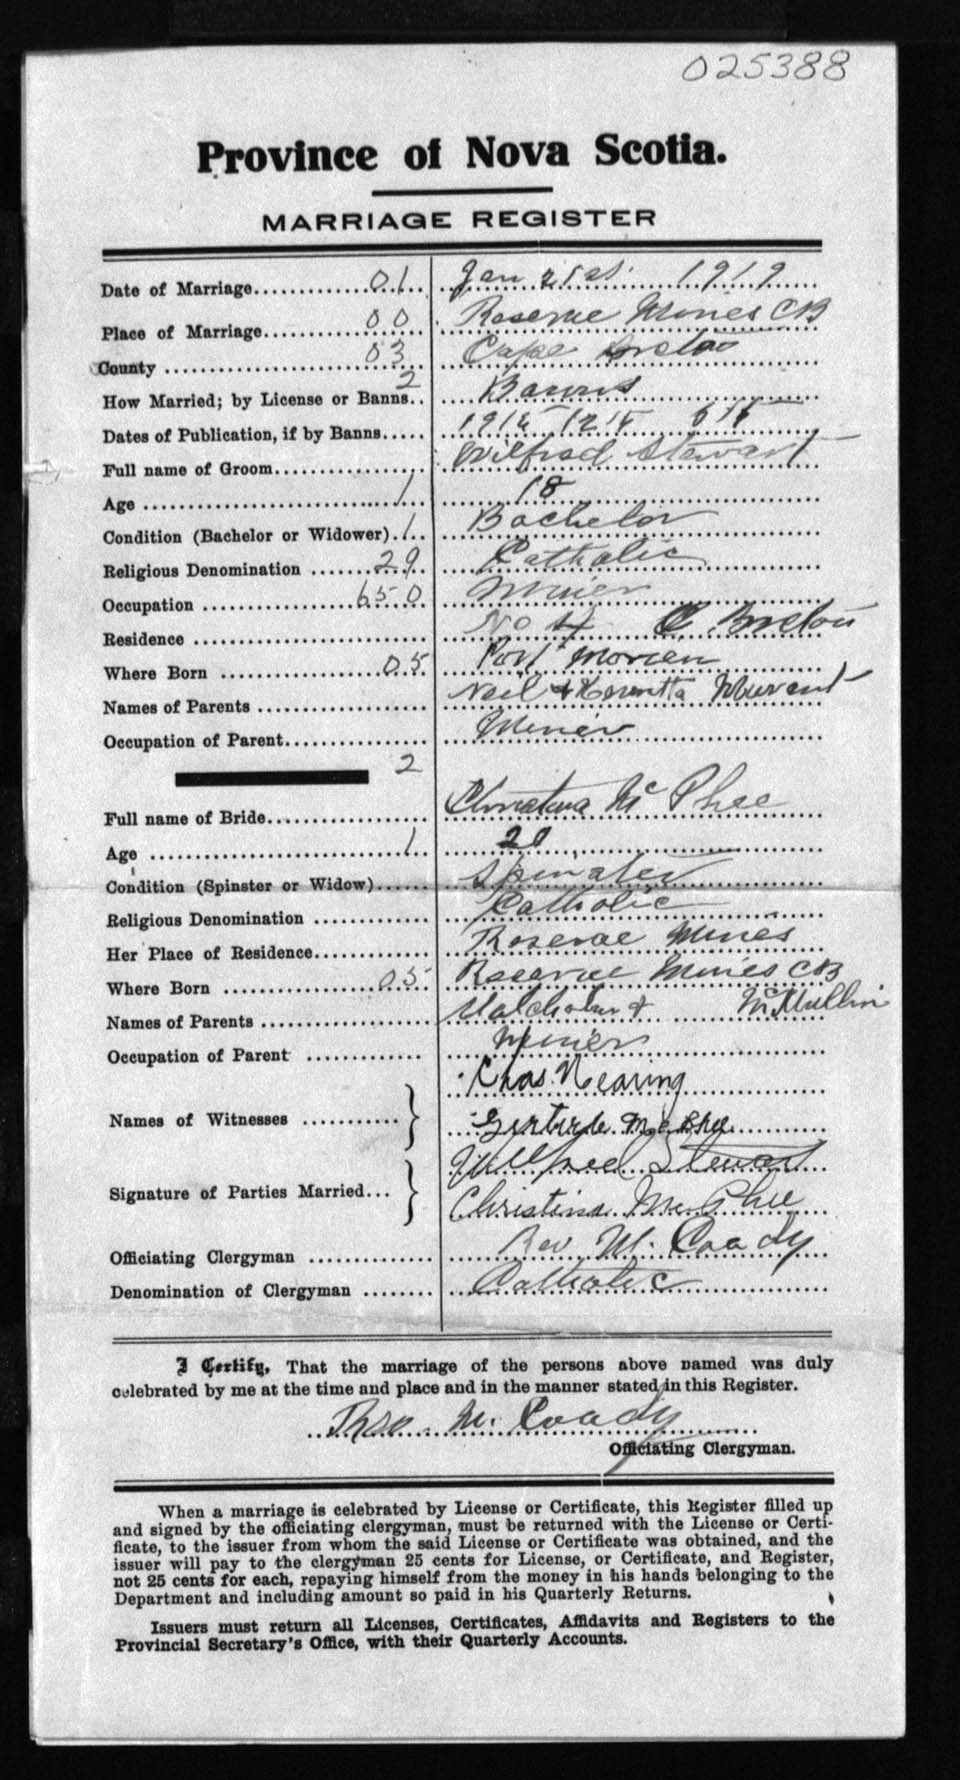 025388
Province of Nova Scotia.
MARRIAGE REGISTER
Date of Marriage 01 Jan 21st. 1919
Place of Marriage 00 Reserve Mines CB
County 03 Cape Breton
How Married; by License or Banns.. 2 Banns
Dates of Publication, if by Banns
Full name of Groom Wilfred Stewart
Age 1 18
Condition (Bachelor or Widower). 1 Bachelor
Religious Denomination 29 Catholic
Occupation 650 Miner
Residence No 4 C Breton
Where Born 05 Port Morien
Names of Parents Neil &
Occupation of Parent Miner
2
Full name of Bride Christina Mc Phee
Age 1 20
Condition (Spinster or Widow) Spinster
Religious Denomination Catholic
Her Place of Residence Reserve Mines
Where Born 05 Reserve Mines CB
Names of Parents Malcholm & McMullin
Occupation of Parent Miner
Names of Witnesses Chas. Nearing
Gertrude McPhee
Signature of Parties Married Wilfred Stewart
Christina McPhee
Officiating Clergyman Rev M. Coady
Denomination of Clergyman Catholic
I Certify, That the marriage of the persons above named was duly
celebrated by me at the time and place and in the manner stated in this Register.
M. Coady
Officiating Clergyman.
When a marriage is celebrated by License or Certificate, this Register filled up
and signed by the officiating clergyman, must be returned with the License or Certi-
ficate, to the issuer from whom the said License or Certificate was obtained, and the
issuer will pay to the clergyman 25 cents for License, or Certificate, and Register,
not 25 cents for each, repaying himself from the money in his hands belonging to the
Department and including amount so paid in his Quarterly Returns.
Issuers must return all Licenses, Certificates, Affidavits and Registers to the
Provincial Secretary's Office, with their Quarterly Accounts.